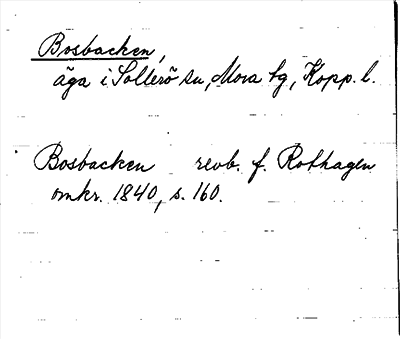 Bosbacken,
äga i Sollerö sn, Mora tg, Kopp. l.
Bosbacken revb. f. Rothagen
omkr. 1840, s. 160.